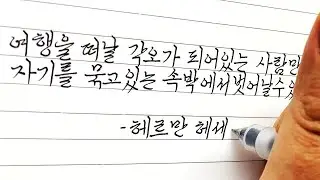 여행을 떠날 각오가 되어있는 사람만
자기를 묶고있는 속박에서 벗어날수있
-헤르만 헤세